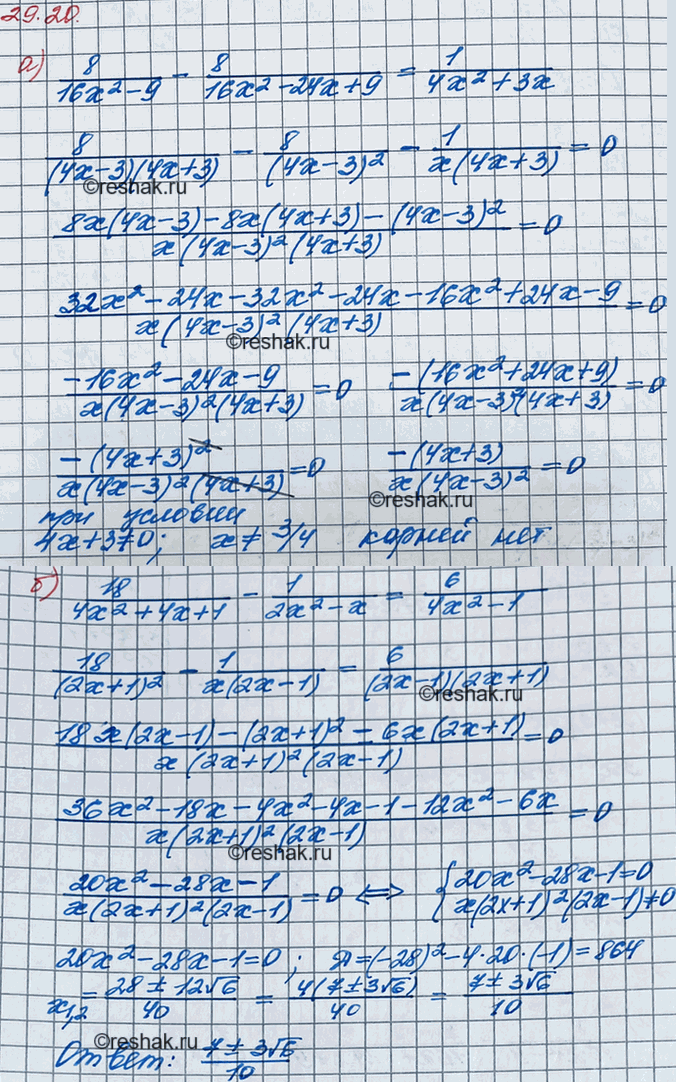 29.20.
а) 8/(16x²-9) - 8/(16x²-24x+9) = 1/(4x²+3x)
8/((4x-3)(4x+3)) - 8/(4x-3)² - 1/(x(4x+3)) = 0
©reshak.ru
(8x(4x-3)-8x(4x+3)-(4x-3)²)/(x(4x-3)²(4x+3)) = 0
(32x²-24x-32x²-24x-16x²+24x-9)/(x(4x-3)²(4x+3)) = 0
©reshak.ru
(-16x²-24x-9)/(x(4x-3)²(4x+3)) = 0   (-(16x²+24x+9))/(x(4x-3)²(4x+3)) = 0
(-(4x+3)²)/(x(4x-3)²(4x+3)) = 0   (-(4x+3))/(x(4x-3)²) = 0
©reshak.ru
при условии
4x+3≠0; x≠3/4 корней нет
б) 18/(4x²+4x+1) - 1/(2x²-x) = 6/(4x²-1)
18/(2x+1)² - 1/(x(2x-1)) = 6/((2x-1)(2x+1))
©reshak.ru
(18x(2x-1)-(2x+1)²-6x(2x+1))/(x(2x+1)²(2x-1)) = 0
(36x²-18x-4x²-4x-1-12x²-6x)/(x(2x+1)²(2x-1)) = 0
©reshak.ru
(20x²-28x-1)/(x(2x+1)²(2x-1)) = 0 ⟺ {20x²-28x-1=0
x(2x+1)²(2x-1)≠0
20x²-28x-1=0; Д=(-28)²-4·20·(-1)=864
x₁,₂ = (28±12√6)/40 = (4(7±3√6))/40 = (7±3√6)/10
©reshak.ru
Ответ: (7±3√6)/10